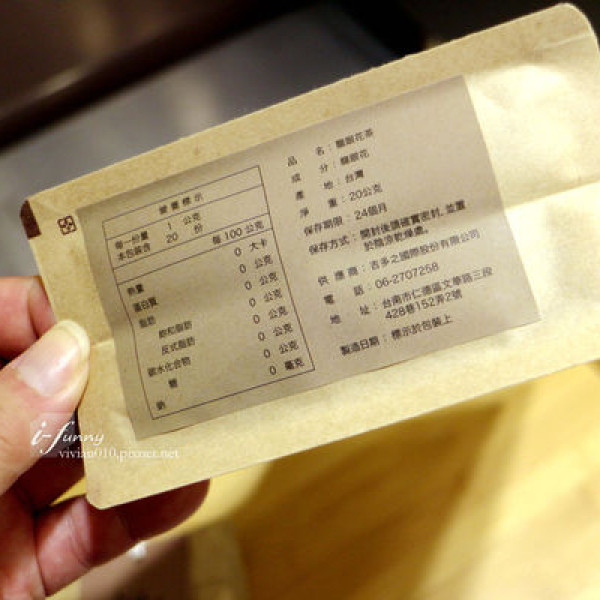 營養標示
每一份量 1 公克
本包裝含 20 份
每100公克
熱量 0 大卡
蛋白質 0 公克
脂肪 0 公克
飽和脂肪 0 公克
反式脂肪 0 公克
碳水化合物 0 公克
糖 0 公克
鈉 0 毫克
品名：龍眼花茶
成分：龍眼花
產地：台灣
淨重：20公克
保存期限：24個月
保存方式：開封後請確實密封，並置
於陰涼乾燥處。
供應商：吉多之國際股份有限公司
電話：06-2707258
地址：台南市仁德區文華路三段
428巷152弄2號
製造日期：標示於包裝上
i-funny
vivian010.pixnet.net